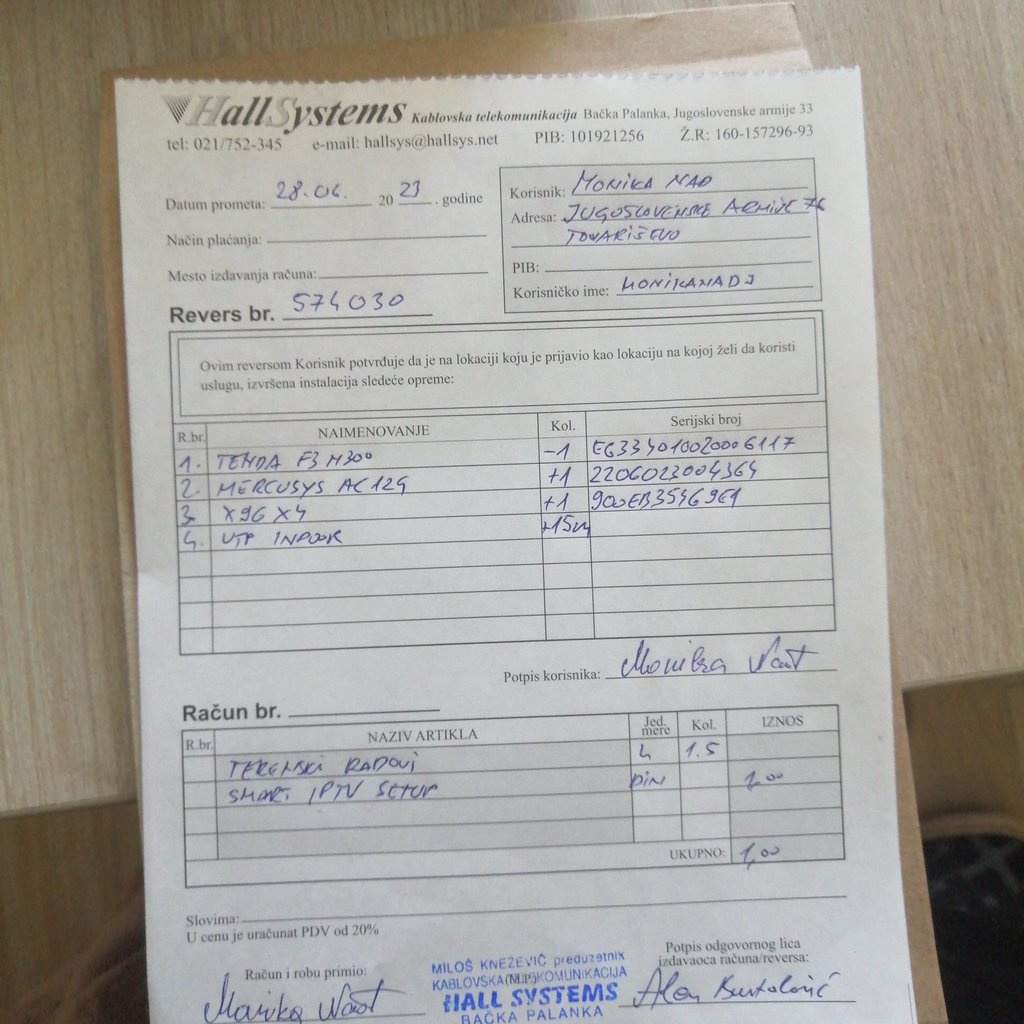 HallSystems Kablovska telekomunikacija Bačka Palanka, Jugoslovenske armije 33
tel: 021/752-345 e-mail: hallsys@hallsys.net PIB: 101921256 Ž.R: 160-157296-93
Datum prometa: 28.06. 2023. godine
Način plaćanja:
Mesto izdavanja računa:
Revers br. 574030
Korisnik: MONIKA NAĐ
Adresa: JUGOSLOVENSKE ARMIJE 76
TOVARIŠEVO
PIB:
Korisničko ime: MONIKANADJ
Ovim reversom Korisnik potvrđuje da je na lokaciji koju je prijavio kao lokaciju na kojoj želi da koristi
uslugu, izvršena instalacija sledeće opreme:
R.br. NAIMENOVANJE Kol. Serijski broj
1. TENDA F3 N300 -1 E6334010020006117
2. MERCUSYS AC12G +1 2206023004364
3. X96 X4 +1 900EB35469E1
4. UTP INDOOR +15m
Potpis korisnika: Monika
Račun br.
R.br. NAZIV ARTIKLA Jed. mere Kol. IZNOS
TERENSKI RADOVI 1.5
SMART IPTV SETUP DIN 1,00
UKUPNO: 1,00
Slovima:
U cenu je uračunat PDV od 20%
Račun i robu primio:
Monika
MILOŠ KNEŽEVIĆ preduzetnik
KABLOVSKA TELEKOMUNIKACIJA
HALL SYSTEMS
BAČKA PALANKA
(M.P.)
Potpis odgovornog lica
izdavaoca računa/reversa: